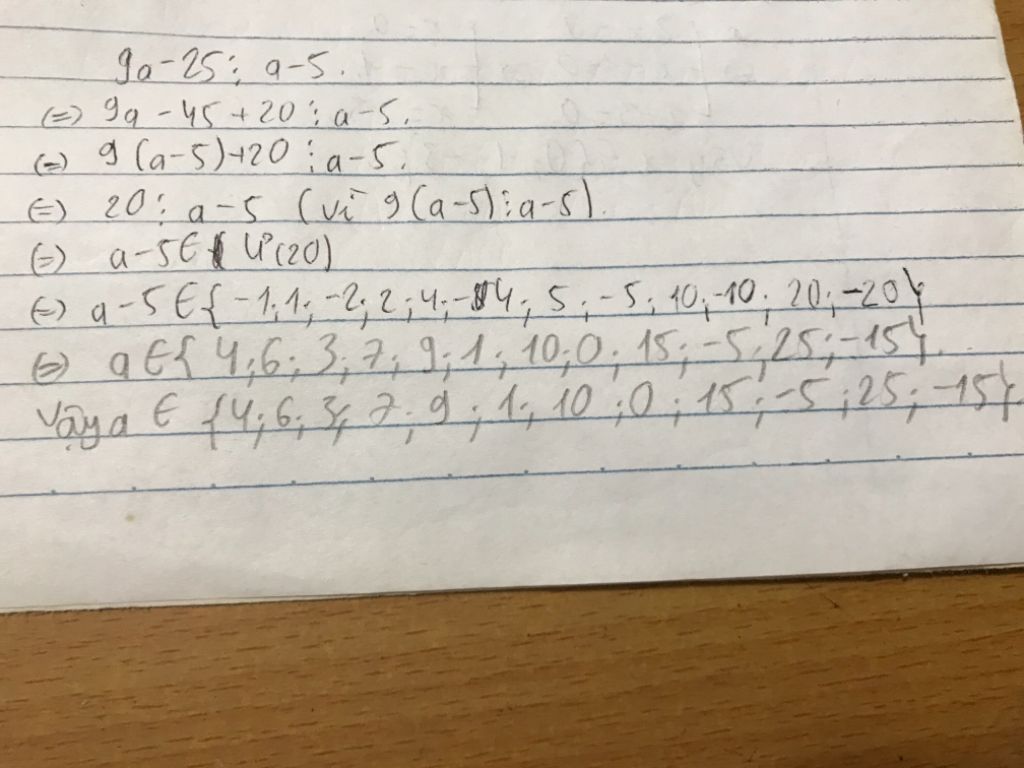 9a-25⋮ a-5.
(=) 9a - 45 + 20 ⋮ a-5.
(=) 9 (a-5)+20 ⋮ a-5.
(=) 20 ⋮ a-5 (vì 9(a-5)⋮a-5).
(=) a-5 ∈ Ư(20)
(=) a-5 ∈ { -1; 1; -2; 2; 4; -4; 5; -5; 10; -10; 20; -20}
(=) a ∈ { 4; 6; 3; 7; 9; 1; 10; 0; 15; -5; 25; -15}.
Vậy a ∈ {4; 6; 3; 7; 9; 1; 10; 0; 15; -5; 25; -15}.